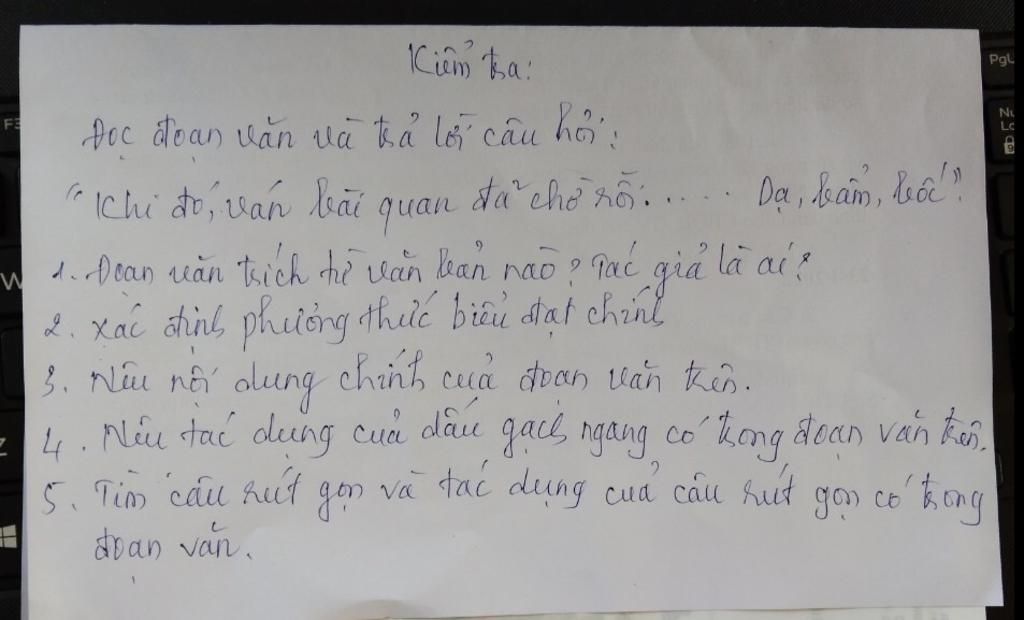 Kiểm tra:
Đọc đoạn văn và trả lời câu hỏi:
"Khi đó, ván bài quan đã chờ rồi..... Dạ, bẩm, bốc".
1. Đoạn văn trích từ văn bản nào? Tác giả là ai?
2. Xác định phương thức biểu đạt chính
3. Nêu nội dung chính của đoạn văn trên.
4. Nêu tác dụng của dấu gạch ngang có trong đoạn văn trên.
5. Tìm câu rút gọn và tác dụng của câu rút gọn có trong
đoạn văn.